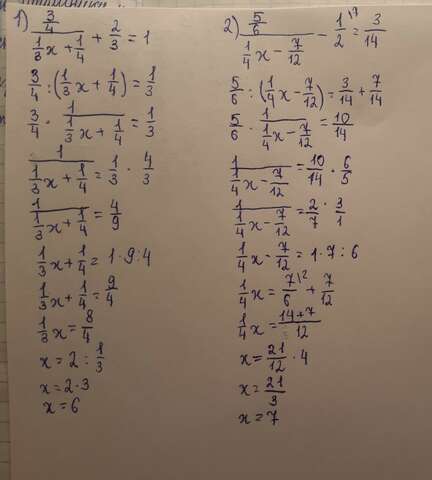 1) (3/4)/(1/3 x + 1/4) + 2/3 = 1
3/4 : (1/3 x + 1/4) = 1/3
3/4 · 1/(1/3 x + 1/4) = 1/3
1/(1/3 x + 1/4) = 1/3 · 4/3
1/(1/3 x + 1/4) = 4/9
1/3 x + 1/4 = 1·9:4
1/3 x + 1/4 = 9/4
1/3 x = 8/4
x = 2 : 1/3
x = 2·3
x = 6
2) (5/6)/(1/4 x - 7/12) - 1/2 \7 = 3/14
5/6 : (1/4 x - 7/12) = 3/14 + 7/14
5/6 · 1/(1/4 x - 7/12) = 10/14
1/(1/4 x - 7/12) = 10/14 · 6/5
1/(1/4 x - 7/12) = 2/7 · 3/1
1/4 x - 7/12 = 1·7:6
1/4 x = 7/6 \2 + 7/12
1/4 x = (14+7)/12
x = 21/12 · 4
x = 21/3
x = 7